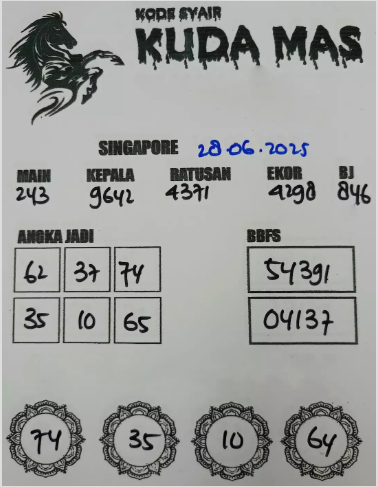 KODE SYAIR
KUDA MAS
SINGAPORE 28.06.2025
MAIN KEPALA RATUSAN EKOR BJ
243 9642 4371 4298 846
ANGKA JADI BBFS
62 37 74 54391
35 10 65 04137
74 35 10 64